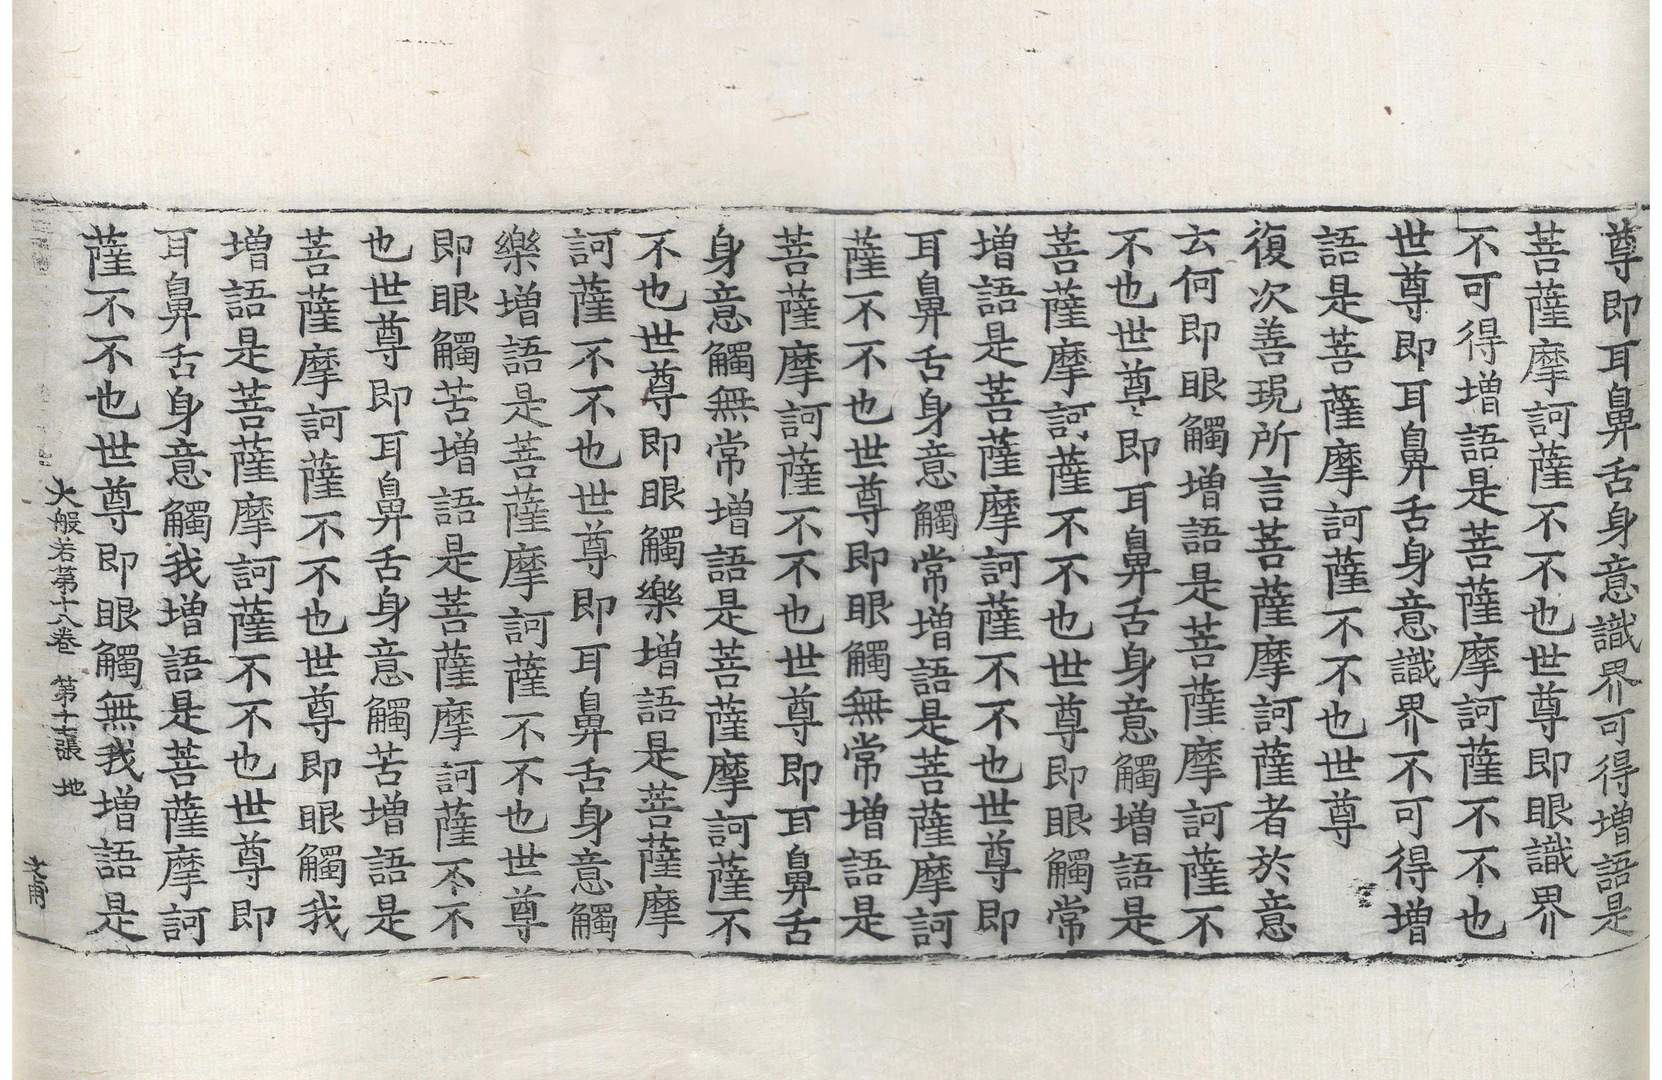 尊即耳鼻舌身意識界可得增語是
菩薩摩訶薩不不也世尊即眼識界
不可得增語是菩薩摩訶薩不不也
世尊即耳鼻舌身意識界不可得增
語是菩薩摩訶薩不不也世尊
復次善現所言菩薩摩訶薩者於意
云何即眼觸增語是菩薩摩訶薩不
不也世尊即耳鼻舌身意觸增語是
菩薩摩訶薩不不也世尊即眼觸常
增語是菩薩摩訶薩不不也世尊即
耳鼻舌身意觸常增語是菩薩摩訶
薩不不也世尊即眼觸無常增語是
菩薩摩訶薩不不也世尊即耳鼻舌
身意觸無常增語是菩薩摩訶薩不
不也世尊即眼觸樂增語是菩薩摩
訶薩不不也世尊即耳鼻舌身意觸
樂增語是菩薩摩訶薩不不也世尊
即眼觸苦增語是菩薩摩訶薩不不
也世尊即耳鼻舌身意觸苦增語是
菩薩摩訶薩不不也世尊即眼觸我
增語是菩薩摩訶薩不不也世尊即
耳鼻舌身意觸我增語是菩薩摩訶
薩不不也世尊即眼觸無我增語是
大般若第十八卷 第十七張 地
文甫